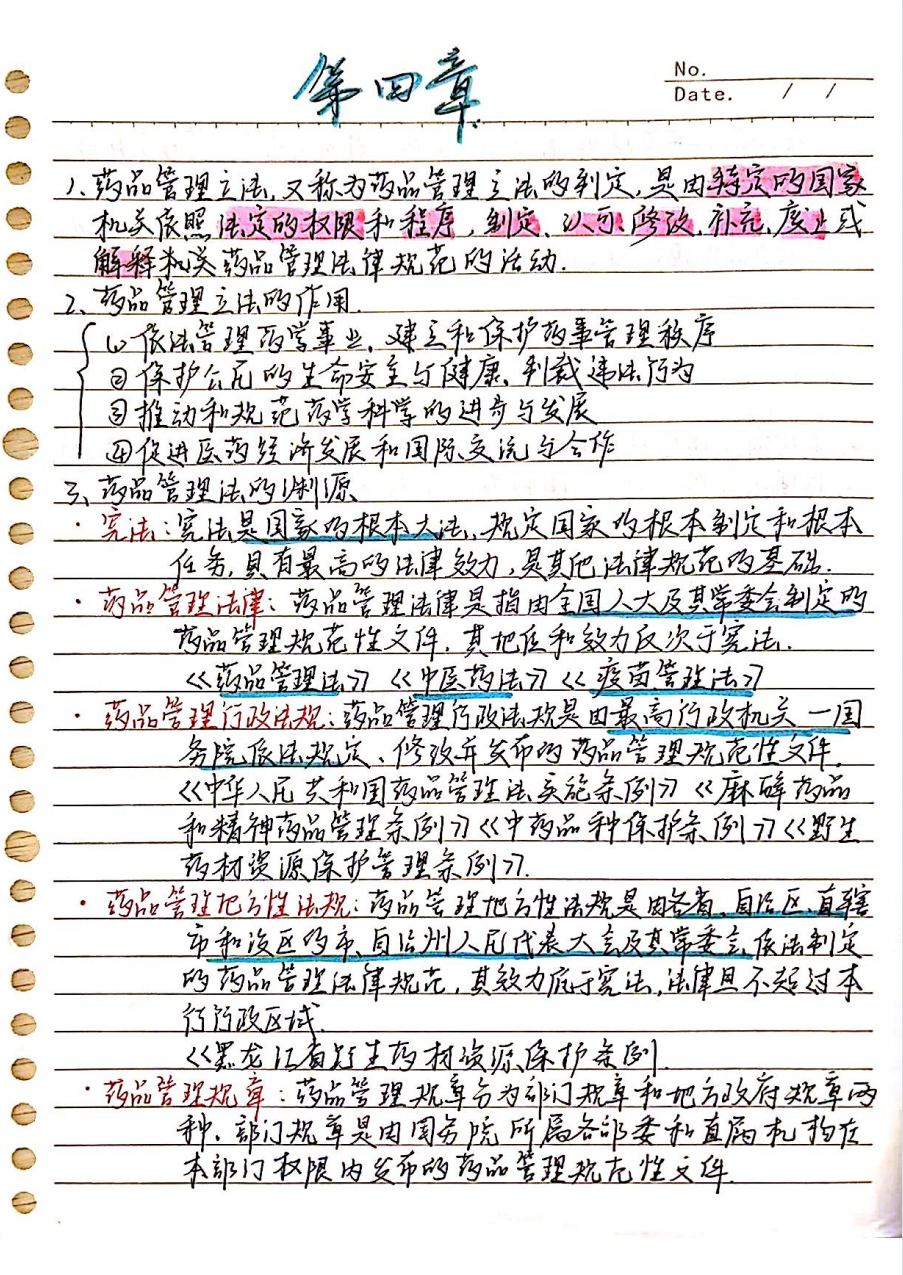 第四章
No.
Date. / /
1、药品管理立法,又称为药品管理立法的制定,是由特定的国家
机关依照法定的权限和程序,制定、认可、修改、补充、废止或
解释机关药品管理法律规范的活动.
2、药品管理立法的作用.
① 依法管理药学事业、建立和保护药事管理秩序
② 保护公民的生命安全与健康、制裁违法行为
③ 推动和规范药学科学的进步与发展
④ 促进医药经济发展和国际交流与合作
3、药品管理法的渊源
· 宪法:宪法是国家的根本大法、规定国家的根本制定和根本
任务,具有最高的法律效力,是其他法律规范的基础.
· 药品管理法律:药品管理法律是指由全国人大及其常委会制定的
药品管理规范性文件,其地位和效力仅次于宪法.
《药品管理法》《中医药法》《疫苗管理法》
· 药品管理行政法规:药品管理行政法规是由最高行政机关—国
务院依法规定、修改并发布的药品管理规范性文件.
《中华人民共和国药品管理法实施条例》《麻醉药品
和精神药品管理条例》《中药品种保护条例》《野生
药材资源保护管理条例》.
· 药品管理地方性法规:药品管理地方性法规是由各省、自治区、直辖
市和设区的市、自治州人民代表大会及其常委会依法制定
的药品管理法律规范,其效力低于宪法,法律且不超过本
行行政区域.
《黑龙江省野生药材资源保护条例
· 药品管理规章:药品管理规章分为部门规章和地方政府规章两
种、部门规章是由国务院所属各部委和直属机构在
本部门权限内发布的药品管理规范性文件.